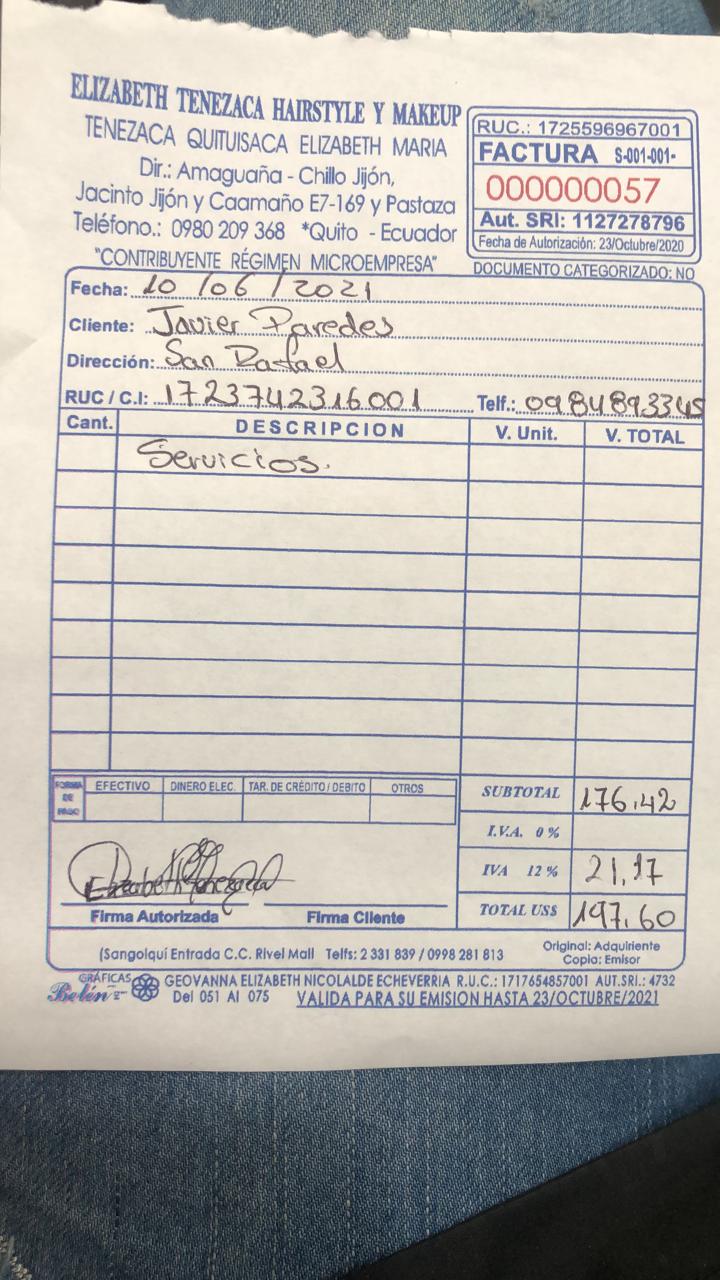 ELIZABETH TENEZACA HAIRSTYLE Y MAKEUP
TENEZACA QUITUISACA ELIZABETH MARIA
Dir.: Amaguaña - Chillo Jijón,
Jacinto Jijón y Caamaño E7-169 y Pastaza
Teléfono.: 0980 209 368 *Quito - Ecuador
"CONTRIBUYENTE RÉGIMEN MICROEMPRESA"
RUC.: 1725596967001
FACTURA S-001-001-
000000057
Aut. SRI: 1127278796
Fecha de Autorización: 23/Octubre/2020
DOCUMENTO CATEGORIZADO: NO
Fecha: 10 / 06 / 2021
Cliente: Javier Paredes
Dirección: San Rafael
RUC / C.I: 1723742316001 Telf.: 0984893345
Cant. DESCRIPCION V. Unit. V. TOTAL
Servicios.
FORMA DE PAGO EFECTIVO DINERO ELEC. TAR. DE CRÉDITO / DEBITO OTROS
SUBTOTAL 176,42
I.V.A. 0 %
IVA 12 % 21,17
TOTAL US$ 197,60
Elizabeth Tenezaca
Firma Autorizada Firma Cliente
(Sangolquí Entrada C.C. River Mall Telfs: 2 331 839 / 0998 281 813
Original: Adquiriente
Copia: Emisor
GRÁFICAS Belén GEOVANNA ELIZABETH NICOLALDE ECHEVERRIA R.U.C.: 1717654857001 AUT.SRI.: 4732
Del 051 Al 075 VALIDA PARA SU EMISION HASTA 23/OCTUBRE/2021